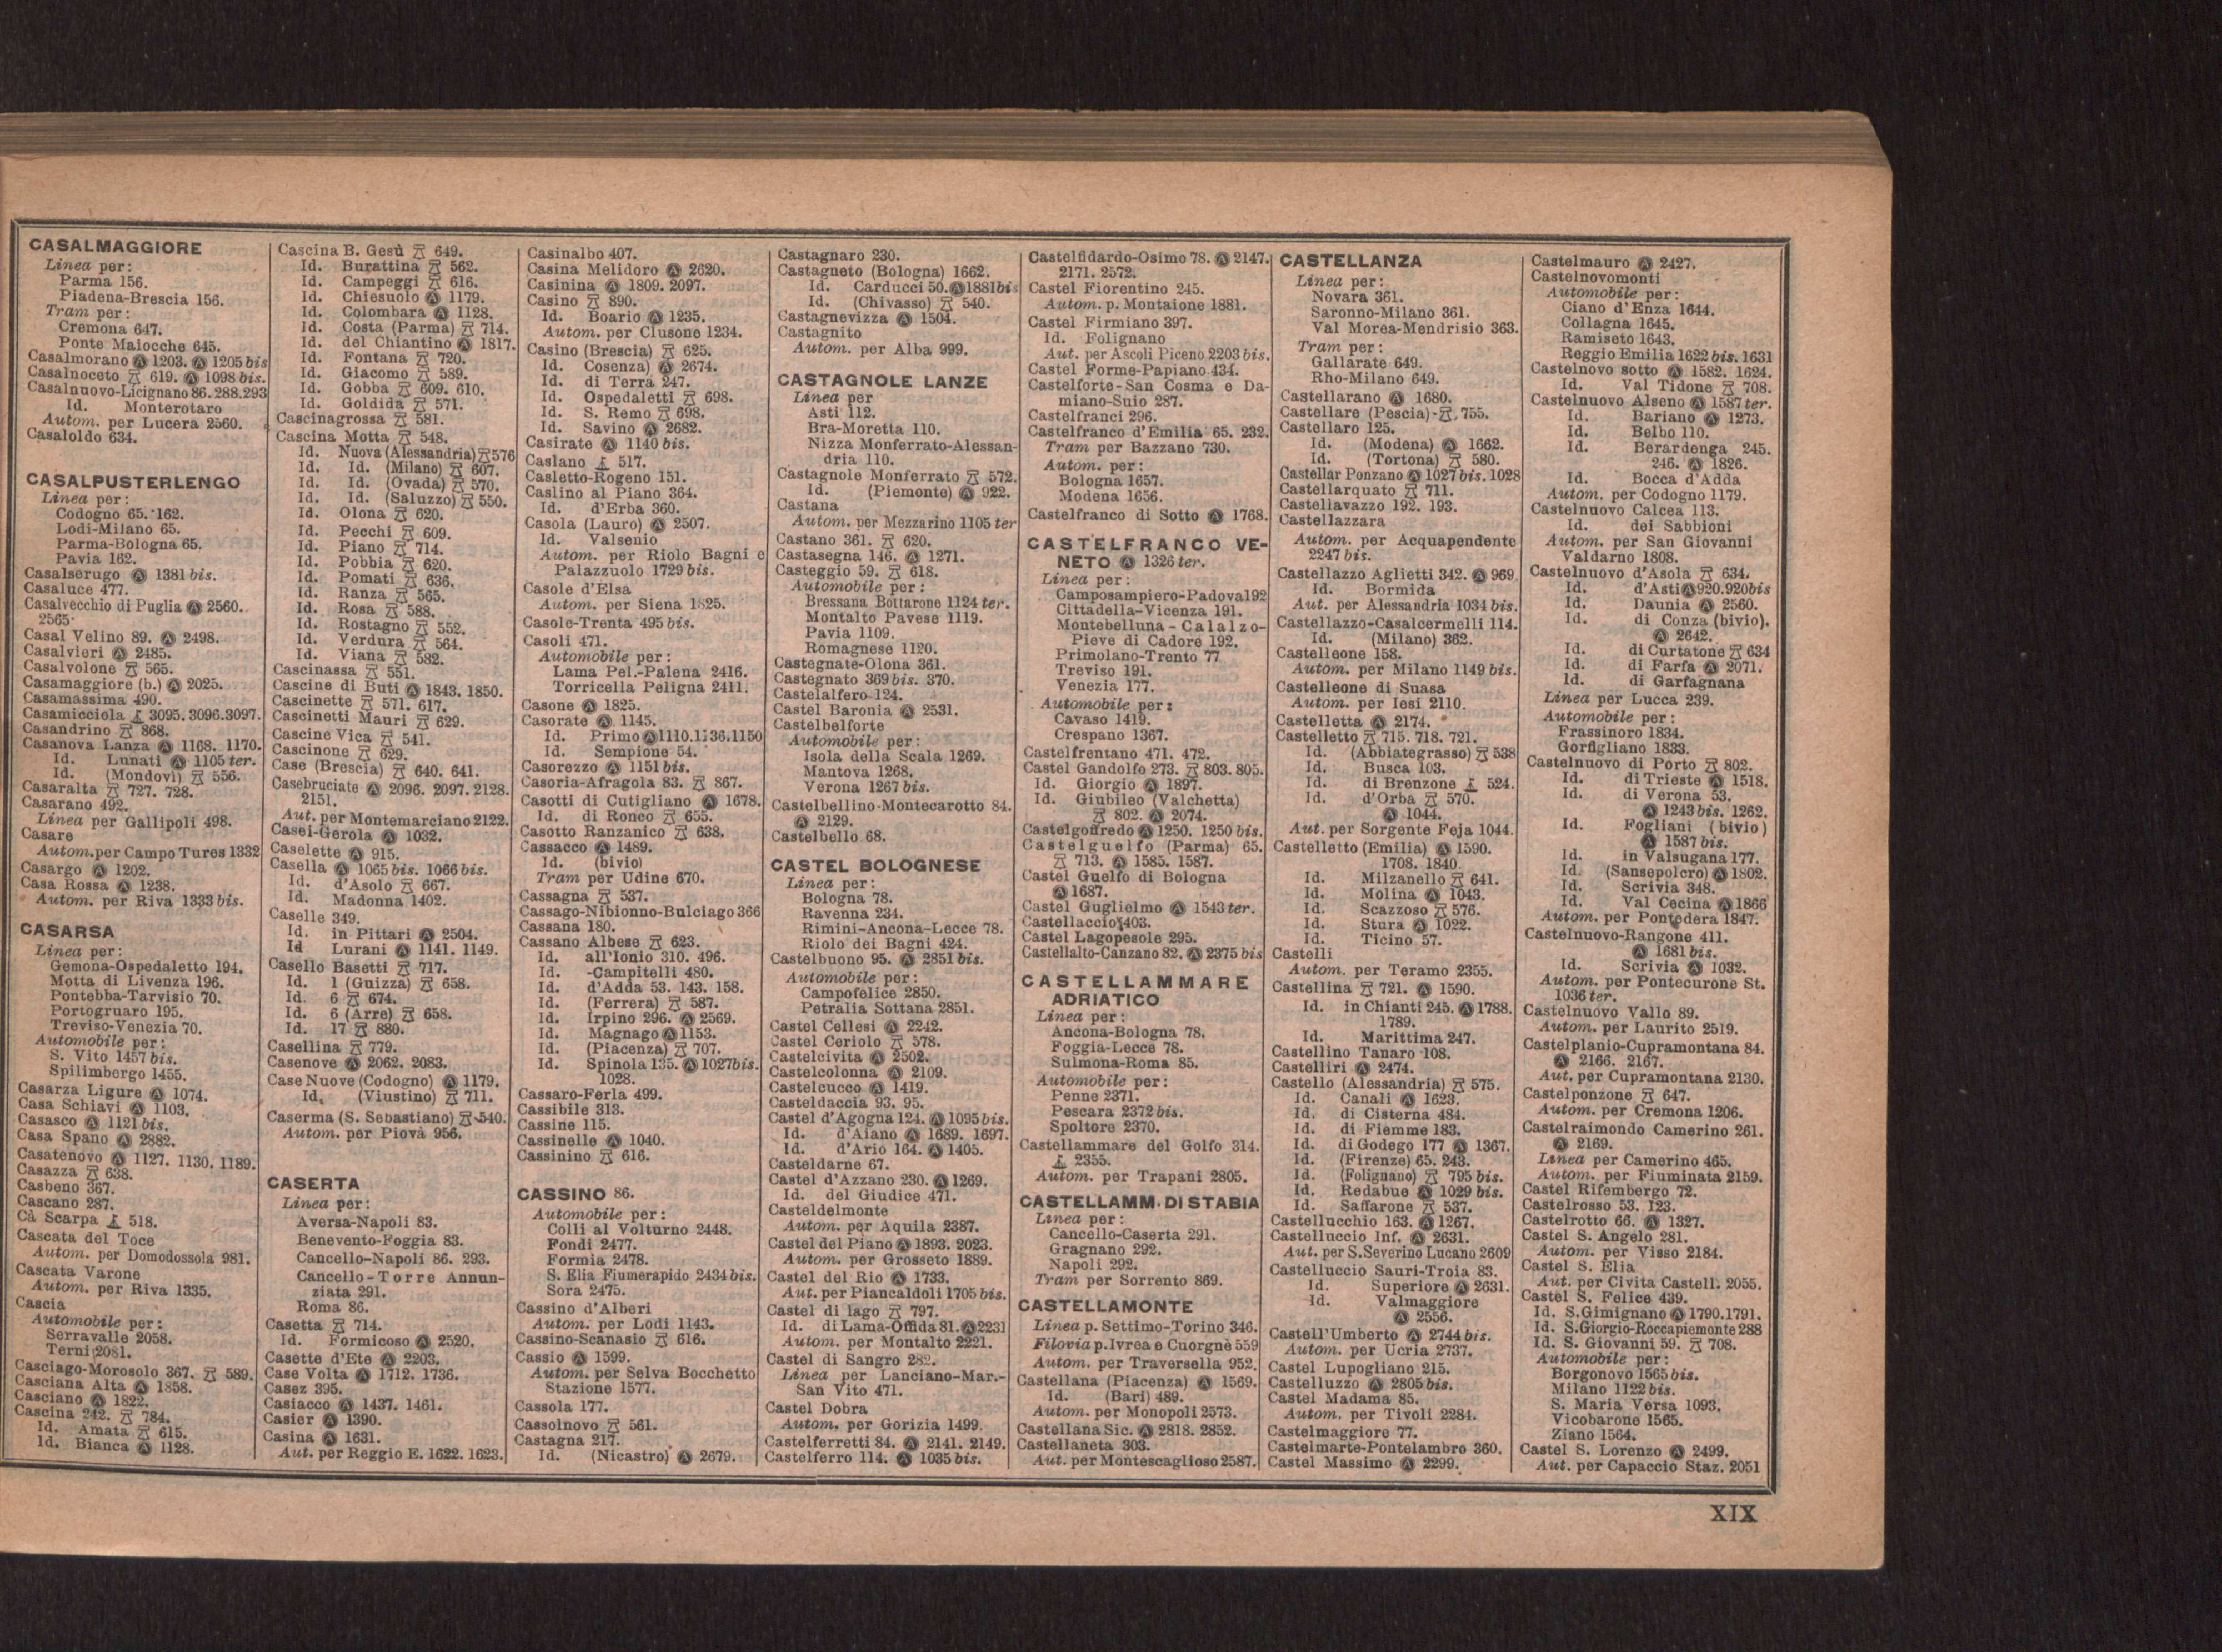 CASALMAGGIORE
Linea per:
Parma 156.
Piadena-Brescia 156.
Tram per:
Cremona 647.
Ponte Maiocche 645.
Casalmorano Ⓐ 1203. Ⓐ 1205 bis
Casalnoceto 619. Ⓐ 1098 bis.
Casalnuovo-Licignano 86. 288. 293
Id. Monterotaro
Autom. per Lucera 2560.
Casaloldo 634.
CASALPUSTERLENGO
Linea per:
Codogno 65. 162.
Lodi-Milano 65.
Parma-Bologna 65.
Pavia 162.
Casalserugo Ⓐ 1381 bis.
Casaluce 477.
Casalvecchio di Puglia Ⓐ 2560.
2565
Casal Velino 89. Ⓐ 2498.
Casalvieri Ⓐ 2485.
Casalvolone 565.
Casamaggiore (b.) Ⓐ 2025.
Casamassima 490.
Casamicciola 3095. 3096. 3097.
Casandrino 868.
Casanova Lanza Ⓐ 1168. 1170.
Id. Lunati Ⓐ 1105 ter.
Id. (Mondovì) 556.
Casaralta 727. 728.
Casarano 492.
Linea per Gallipoli 498.
Casare
Autom. per Campo Tures 1332
Casargo Ⓐ 1202.
Casa Rossa Ⓐ 1238.
Autom. per Riva 1333 bis.
CASARSA
Linea per:
Gemona-Ospedaletto 194.
Motta di Livenza 196.
Pontebba-Tarvisio 70.
Portogruaro 195.
Treviso-Venezia 70.
Automobile per:
S. Vito 1457 bis.
Spilimbergo 1455.
Casarza Ligure Ⓐ 1074.
Casa Schiavi Ⓐ 1103.
Casasco Ⓐ 1121 bis.
Casa Spano Ⓐ 2882.
Casatenovo Ⓐ 1127. 1130. 1189.
Casazza 638.
Casbeno 367.
Cascano 287.
Cà Scarpa 518.
Cascata del Toce
Autom. per Domodossola 981.
Cascata Varone
Autom. per Riva 1335.
Cascia
Automobile per:
Serravalle 2058.
Terni 2081.
Casciago-Morosolo 367. 589.
Casciana Alta Ⓐ 1858.
Casciano Ⓐ 1822.
Cascina 242. 784.
Id. Amata 615.
Id. Bianca Ⓐ 1128.
Cascina B. Gesù 649.
Id. Burattina 562.
Id. Campeggi 616.
Id. Chiesuolo Ⓐ 1179.
Id. Colombara Ⓐ 1128.
Id. Costa (Parma) 714.
Id. del Chiantino Ⓐ 1817.
Id. Fontana 720.
Id. Giacomo 589.
Id. Gobba 609. 610.
Id. Goldida 571.
Cascinagrossa 581.
Cascina Motta 548.
Id. Nuova (Alessandria) 576
Id. Id. (Milano) 607.
Id. Id. (Ovada) 570.
Id. Id. (Saluzzo) 550.
Id. Olona 620.
Id. Pecchi 609.
Id. Piano 714.
Id. Pobbia 620.
Id. Pomati 636.
Id. Ranza 565.
Id. Rosa 588.
Id. Rostagno 552.
Id. Verdura 564.
Id. Viana 582.
Cascinassa 551.
Cascine di Buti Ⓐ 1843. 1850.
Cascinette 571. 617.
Cascinetti Mauri 629.
Cascine Vica 541.
Cascinone 629.
Case (Brescia) 640. 641.
Casebruciate Ⓐ 2096. 2097. 2128.
2151.
Aut. per Montemarciano 2122.
Casei-Gerola Ⓐ 1032.
Caselette Ⓐ 915.
Casella Ⓐ 1065 bis. 1066 bis.
Id. d'Asolo 667.
Id. Madonna 1402.
Caselle 349.
Id. in Pittari Ⓐ 2504.
Id Lurani Ⓐ 1141. 1149.
Casello Basetti 717.
Id. 1 (Guizza) 658.
Id. 6 674.
Id. 6 (Arre) 658.
Id. 17 880.
Casellina 779.
Casenove Ⓐ 2062. 2083.
Case Nuove (Codogno) Ⓐ 1179.
Id. (Viustino) 711.
Caserma (S. Sebastiano) 540.
Autom. per Piovà 956.
CASERTA
Linea per:
Aversa-Napoli 83.
Benevento-Foggia 83.
Cancello-Napoli 86. 293.
Cancello-Torre Annun-
ziata 291.
Roma 86.
Casetta 714.
Id. Formicoso Ⓐ 2520.
Casette d'Ete Ⓐ 2203.
Case Volta Ⓐ 1712. 1736.
Casez 395.
Casiacco Ⓐ 1437. 1461.
Casier Ⓐ 1390.
Casina Ⓐ 1631.
Aut. per Reggio E. 1622. 1623.
Casinalbo 407.
Casina Melidoro Ⓐ 2620.
Casinina Ⓐ 1809. 2097.
Casino 890.
Id. Boario Ⓐ 1235.
Autom. per Clusone 1234.
Casino (Brescia) 625.
Id. Cosenza) Ⓐ 2674.
Id. di Terra 247.
Id. Ospedaletti 698.
Id. S. Remo 698.
Id. Savino Ⓐ 2682.
Casirate Ⓐ 1140 bis.
Caslano 517.
Casletto-Rogeno 151.
Caslino al Piano 364.
Id. d'Erba 360.
Casola (Lauro) Ⓐ 2507.
Id. Valsenio
Autom. per Riolo Bagni e
Palazzuolo 1729 bis.
Casole d'Elsa
Autom. per Siena 1825.
Casole-Trenta 495 bis.
Casoli 471.
Automobile per:
Lama Pel.-Palena 2416.
Torricella Peligna 2411.
Casone Ⓐ 1825.
Casorate Ⓐ 1145.
Id. Primo Ⓐ 1110. 1136. 1150
Id. Sempione 54.
Casorezzo Ⓐ 1151 bis.
Casoria-Afragola 83. 867.
Casotti di Cutigliano Ⓐ 1678.
Id. di Ronco 655.
Casotto Ranzanico 638.
Cassacco Ⓐ 1489.
Id. (bivio)
Tram per Udine 670.
Cassagna 537.
Cassago-Nibionno-Bulciago 366
Cassana 180.
Cassano Albese 623.
Id. all'Ionio 310. 496.
Id. -Campitelli 480.
Id. d'Adda 53. 143. 158.
Id. (Ferrera) 587.
Id. Irpino 296. Ⓐ 2569.
Id. Magnago Ⓐ 1153.
Id. (Piacenza) 707.
Id. Spinola 135. Ⓐ 1027 bis.
1028.
Cassaro-Ferla 499.
Cassibile 313.
Cassine 115.
Cassinelle Ⓐ 1040.
Cassinino 616.
CASSINO 86.
Automobile per:
Colli al Volturno 2448.
Fondi 2477.
Formia 2478.
S. Elia Fiumerapido 2434 bis.
Sora 2475.
Cassino d'Alberi
Autom. per Lodi 1143.
Cassino-Scanasio 616.
Cassio Ⓐ 1599.
Autom. per Selva Bocchetto
Stazione 1577.
Cassola 177.
Cassolnovo 561.
Castagna 217.
Id. (Nicastro) Ⓐ 2679.
Castagnaro 230.
Castagneto (Bologna) 1662.
Id. Carducci 50. Ⓐ 1881 bis
Id. (Chivasso) 540.
Castagnevizza Ⓐ 1504.
Castagnito
Autom. per Alba 999.
CASTAGNOLE LANZE
Linea per
Asti 112.
Bra-Moretta 110.
Nizza Monferrato-Alessan-
dria 110.
Castagnole Monferrato 572.
Id. (Piemonte) Ⓐ 922.
Castana
Autom. per Mezzarino 1105 ter
Castano 361. 620.
Castasegna 146. Ⓐ 1271.
Casteggio 59. 618.
Automobile per:
Bressana Bottarone 1124 ter.
Montalto Pavese 1119.
Pavia 1109.
Romagnese 1120.
Castegnate-Olona 361.
Castegnato 369 bis. 370.
Castelalfero 124.
Castel Baronia Ⓐ 2531.
Castelbelforte
Automobile per:
Isola della Scala 1269.
Mantova 1268.
Verona 1267 bis.
Castelbellino-Montecarotto 84.
Ⓐ 2129.
Castelbello 68.
CASTEL BOLOGNESE
Linea per:
Bologna 78.
Ravenna 234.
Rimini-Ancona-Lecce 78.
Riolo dei Bagni 424.
Castelbuono 95. Ⓐ 2851 bis.
Automobile per:
Campofelice 2850.
Petralia Sottana 2851.
Castel Cellesi Ⓐ 2242.
Castel Ceriolo 578.
Castelcivita Ⓐ 2502.
Castelcolonna Ⓐ 2109.
Castelcucco Ⓐ 1419.
Casteldaccia 93. 95.
Castel d'Agogna 124. Ⓐ 1095 bis.
Id. d'Aiano Ⓐ 1689. 1697.
Id. d'Ario 164. Ⓐ 1405.
Casteldarne 67.
Castel d'Azzano 230. Ⓐ 1269.
Id. del Giudice 471.
Casteldelmonte
Autom. per Aquila 2387.
Castel del Piano Ⓐ 1893. 2023.
Autom. per Grosseto 1889.
Castel del Rio Ⓐ 1733.
Aut. per Piancaldoli 1705 bis.
Castel di lago 797.
Id. di Lama-Offida 81. Ⓐ 2231
Autom. per Montalto 2221.
Castel di Sangro 282.
Linea per Lanciano-Mar.-
San Vito 471.
Castel Dobra
Autom. per Gorizia 1499.
Castelferretti 84. Ⓐ 2141. 2149.
Castelferro 114. Ⓐ 1035 bis.
Castelfidardo-Osimo 78. Ⓐ 2147.
2171. 2572.
Castel Fiorentino 245.
Autom. p. Montaione 1881.
Castel Firmiano 397.
Id. Folignano
Aut. per Ascoli Piceno 2203 bis.
Castel Forme-Papiano 434.
Castelforte-San Cosma e Da-
miano-Suio 287.
Castelfranci 296.
Castelfranco d'Emilia 65. 232.
Tram per Bazzano 730.
Autom. per:
Bologna 1657.
Modena 1656.
Castelfranco di Sotto Ⓐ 1768.
CASTELFRANCO VE-
NETO Ⓐ 1326 ter.
Linea per:
Camposampiero-Padova 192
Cittadella-Vicenza 191.
Montebelluna-Calalzo-
Pieve di Cadore 192.
Primolano-Trento 77
Treviso 191.
Venezia 177.
Automobile per:
Cavaso 1419.
Crespano 1367.
Castelfrentano 471. 472.
Castel Gandolfo 273. 803. 805.
Id. Giorgio Ⓐ 1897.
Id. Giubileo (Valchetta)
802. Ⓐ 2074.
Castelgoffredo Ⓐ 1250. 1250 bis.
Castelguelfo (Parma) 65.
713. Ⓐ 1585. 1587.
Castel Guelfo di Bologna
Ⓐ 1687.
Castel Guglielmo Ⓐ 1543 ter.
Castellaccio 403.
Castel Lagopesole 295.
Castellalto-Canzano 82. Ⓐ 2375 bis
CASTELLAMMARE
ADRIATICO
Linea per:
Ancona-Bologna 78.
Foggia-Lecce 78.
Sulmona-Roma 85.
Automobile per:
Penne 2371.
Pescara 2372 bis.
Spoltore 2370.
Castellammare del Golfo 314.
2355.
Autom. per Trapani 2805.
CASTELLAMM. DI STABIA
Linea per:
Cancello-Caserta 291.
Gragnano 292.
Napoli 292.
Tram per Sorrento 869.
CASTELLAMONTE
Linea p. Settimo-Torino 346.
Filovia p. Ivrea e Cuorgnè 559
Autom. per Traversella 952.
Castellana (Piacenza) Ⓐ 1569.
Id. (Bari) 489.
Autom. per Monopoli 2573.
Castellana Sic. Ⓐ 2818. 2852.
Castellaneta 303.
Aut. per Montescaglioso 2587.
CASTELLANZA
Linea per:
Novara 361.
Saronno-Milano 361.
Val Morea-Mendrisio 363.
Tram per:
Gallarate 649.
Rho-Milano 649.
Castellarano Ⓐ 1680.
Castellare (Pescia) 755.
Castellaro 125.
Id. (Modena) Ⓐ 1662.
Id. (Tortona) 580.
Castellar Ponzano Ⓐ 1027 bis. 1028
Castellarquato 711.
Castellavazzo 192. 193.
Castellazzara
Autom. per Acquapendente
2247 bis.
Castellazzo Aglietti 342. Ⓐ 969
Id. Bormida
Aut. per Alessandria 1034 bis.
Castellazzo-Casalcermelli 114.
Id. (Milano) 362.
Castelleone 158.
Autom. per Milano 1149 bis.
Castelleone di Suasa
Autom. per Iesi 2110.
Castelletta Ⓐ 2174.
Castelletto 715. 718. 721.
Id. (Abbiategrasso) 538
Id. Busca 103.
Id. di Brenzone 524.
Id. d'Orba 570.
Ⓐ 1044.
Aut. per Sorgente Feja 1044.
Castelletto (Emilia) Ⓐ 1590.
1708. 1840.
Id. Milzanello 641.
Id. Molina Ⓐ 1043.
Id. Scazzoso 576.
Id. Stura Ⓐ 1022.
Id. Ticino 57.
Castelli
Autom. per Teramo 2355.
Castellina 721. Ⓐ 1590.
Id. in Chianti 245. Ⓐ 1788.
1789.
Id. Marittima 247.
Castellino Tanaro 108.
Castelliri Ⓐ 2474.
Castello (Alessandria) 575.
Id. Canali Ⓐ 1623.
Id. di Cisterna 484.
Id. di Fiemme 183.
Id. di Godego 177 Ⓐ 1367.
Id. (Firenze) 65. 243.
Id. (Folignano) 795 bis.
Id. Redabue Ⓐ 1029 bis.
Id. Saffarone 537.
Castellucchio 163. Ⓐ 1267.
Castelluccio Inf. Ⓐ 2631.
Aut. per S. Severino Lucano 2609
Castelluccio Sauri-Troia 83.
Id. Superiore Ⓐ 2631.
Id. Valmaggiore
Ⓐ 2556.
Castell'Umberto Ⓐ 2744 bis.
Autom. per Ucria 2737.
Castel Lupogliano 215.
Castelluzzo Ⓐ 2805 bis.
Castel Madama 85.
Autom. per Tivoli 2284.
Castelmaggiore 77.
Castelmarte-Pontelambro 360.
Castel Massimo Ⓐ 2299.
Castelmauro Ⓐ 2427.
Castelnovomonti
Automobile per:
Ciano d'Enza 1644.
Collagna 1645.
Ramiseto 1643.
Reggio Emilia 1622 bis. 1631
Castelnovo sotto Ⓐ 1582. 1624.
Id. Val Tidone 708.
Castelnuovo Alseno Ⓐ 1587 ter.
Id. Bariano Ⓐ 1273.
Id. Belbo 110.
Id. Berardenga 245.
246. Ⓐ 1826.
Id. Bocca d'Adda
Autom. per Codogno 1179.
Castelnuovo Calcea 113.
Id. dei Sabbioni
Autom. per San Giovanni
Valdarno 1808.
Castelnuovo d'Asola 634.
Id. d'Asti Ⓐ 920. 920 bis
Id. Daunia Ⓐ 2560.
Id. di Conza (bivio).
Ⓐ 2642.
Id. di Curtatone 634
Id. di Farfa Ⓐ 2071.
Id. di Garfagnana
Linea per Lucca 239.
Automobile per:
Frassinoro 1834.
Gorfigliano 1833.
Castelnuovo di Porto 802.
Id. di Trieste Ⓐ 1518.
Id. di Verona 53.
Ⓐ 1243 bis. 1262.
Id. Fogliani (bivio)
Ⓐ 1587 bis.
Id. in Valsugana 177.
Id. (Sansepolcro) Ⓐ 1802.
Id. Scrivia 348.
Id. Val Cecina Ⓐ 1866
Autom. per Pontedera 1847.
Castelnuovo-Rangone 411.
Ⓐ 1681 bis.
Id. Scrivia Ⓐ 1032.
Autom. per Pontecurone St.
1036 ter.
Castelnuovo Vallo 89.
Autom. per Laurito 2519.
Castelplanio-Cupramontana 84.
Ⓐ 2166. 2167.
Aut. per Cupramontana 2130.
Castelponzone 647.
Autom. per Cremona 1206.
Castelraimondo Camerino 261.
Ⓐ 2169.
Linea per Camerino 465.
Autom. per Fiuminata 2159.
Castel Rifembergo 72.
Castelrosso 53. 123.
Castelrotto 66. Ⓐ 1327.
Castel S. Angelo 281.
Autom. per Visso 2184.
Castel S. Elia
Aut. per Civita Castell. 2055.
Castel S. Felice 439.
Id. S. Gimignano Ⓐ 1790. 1791.
Id. S. Giorgio-Roccapiemonte 288
Id. S. Giovanni 59. 708.
Automobile per:
Borgonovo 1565 bis.
Milano 1122 bis.
S. Maria Versa 1093.
Vicobarone 1565.
Ziano 1564.
Castel S. Lorenzo Ⓐ 2499.
Aut. per Capaccio Staz. 2051
XIX